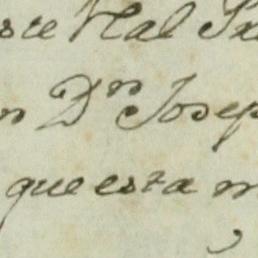 este Rl al
n Dⁿ Josep
que esta m